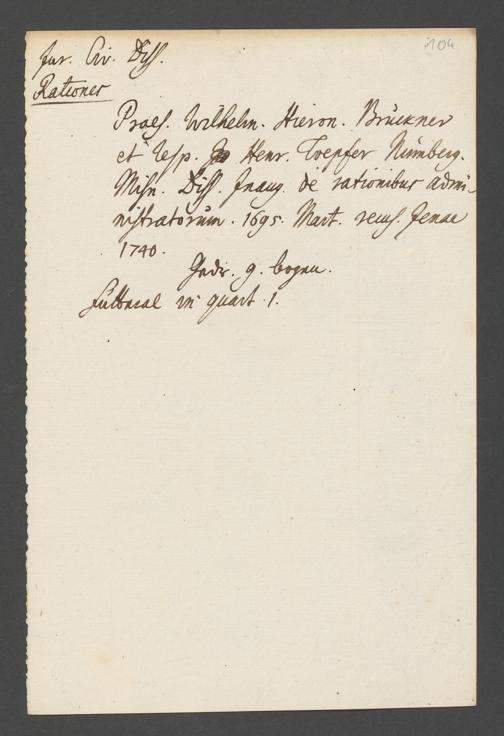 104
Jur. Civ. Diss.
Rationes
Praes. Wilhelm. Hieron. Brückner
et Resp. Jo Henr. Toepfer Nürnberg.
Misn. Diss. Inaug. de rationibus admi-
nistratorum. 1695. Mart. recus. Jenae
1740.
Gedr. 9. bogen.
in quart. 1.